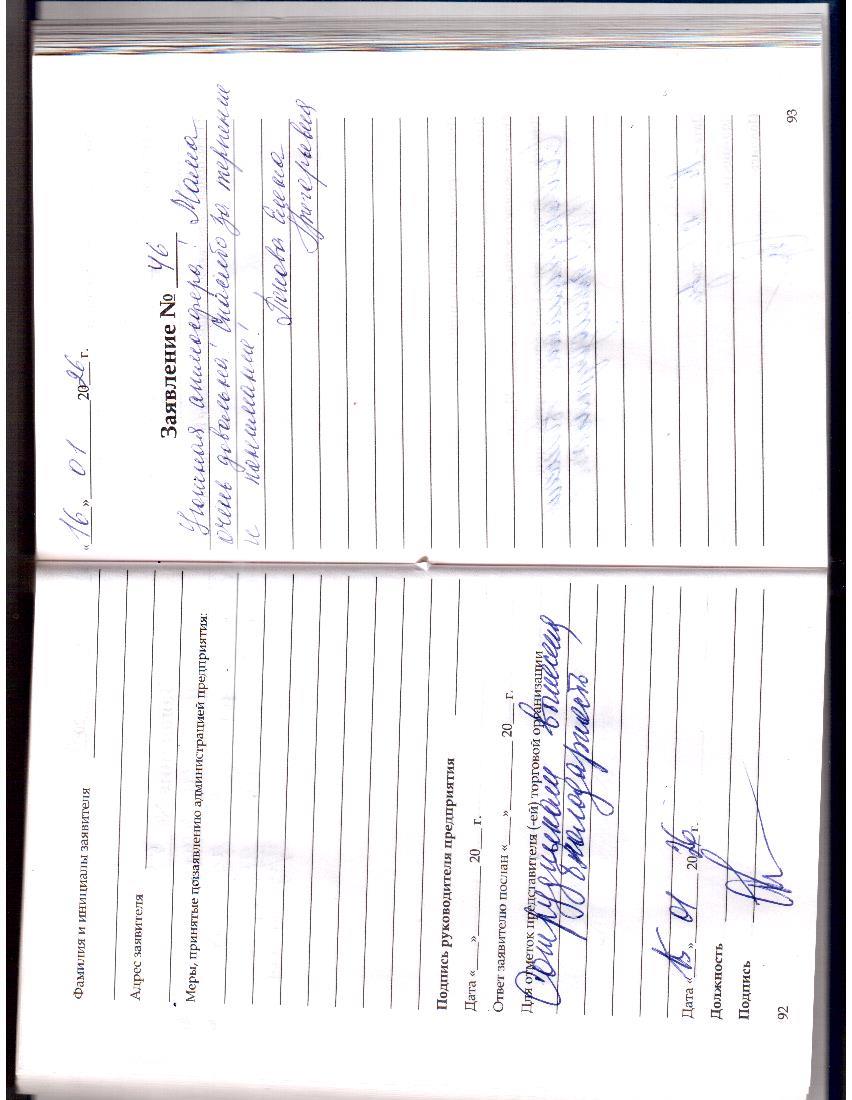 Фамилия и инициалы заявителя
Адрес заявителя
Меры, принятые по заявлению администрацией предприятия:
Подпись руководителя предприятия
Дата «___» ________ 20___ г.
Ответ заявителю послан «___» ________ 20___ г.
Для отметок представителя (-ей) торговой организации
Сотрудникам вынесена
благодарность
Дата «15» 01 2026 г.
Должность
Подпись
92
«16» 01 2026 г.
Заявление № 46
Уютная атмосфера! Мама
очень довольна! Спасибо за терпение
и понимание!
Елена
Григорьевна
93